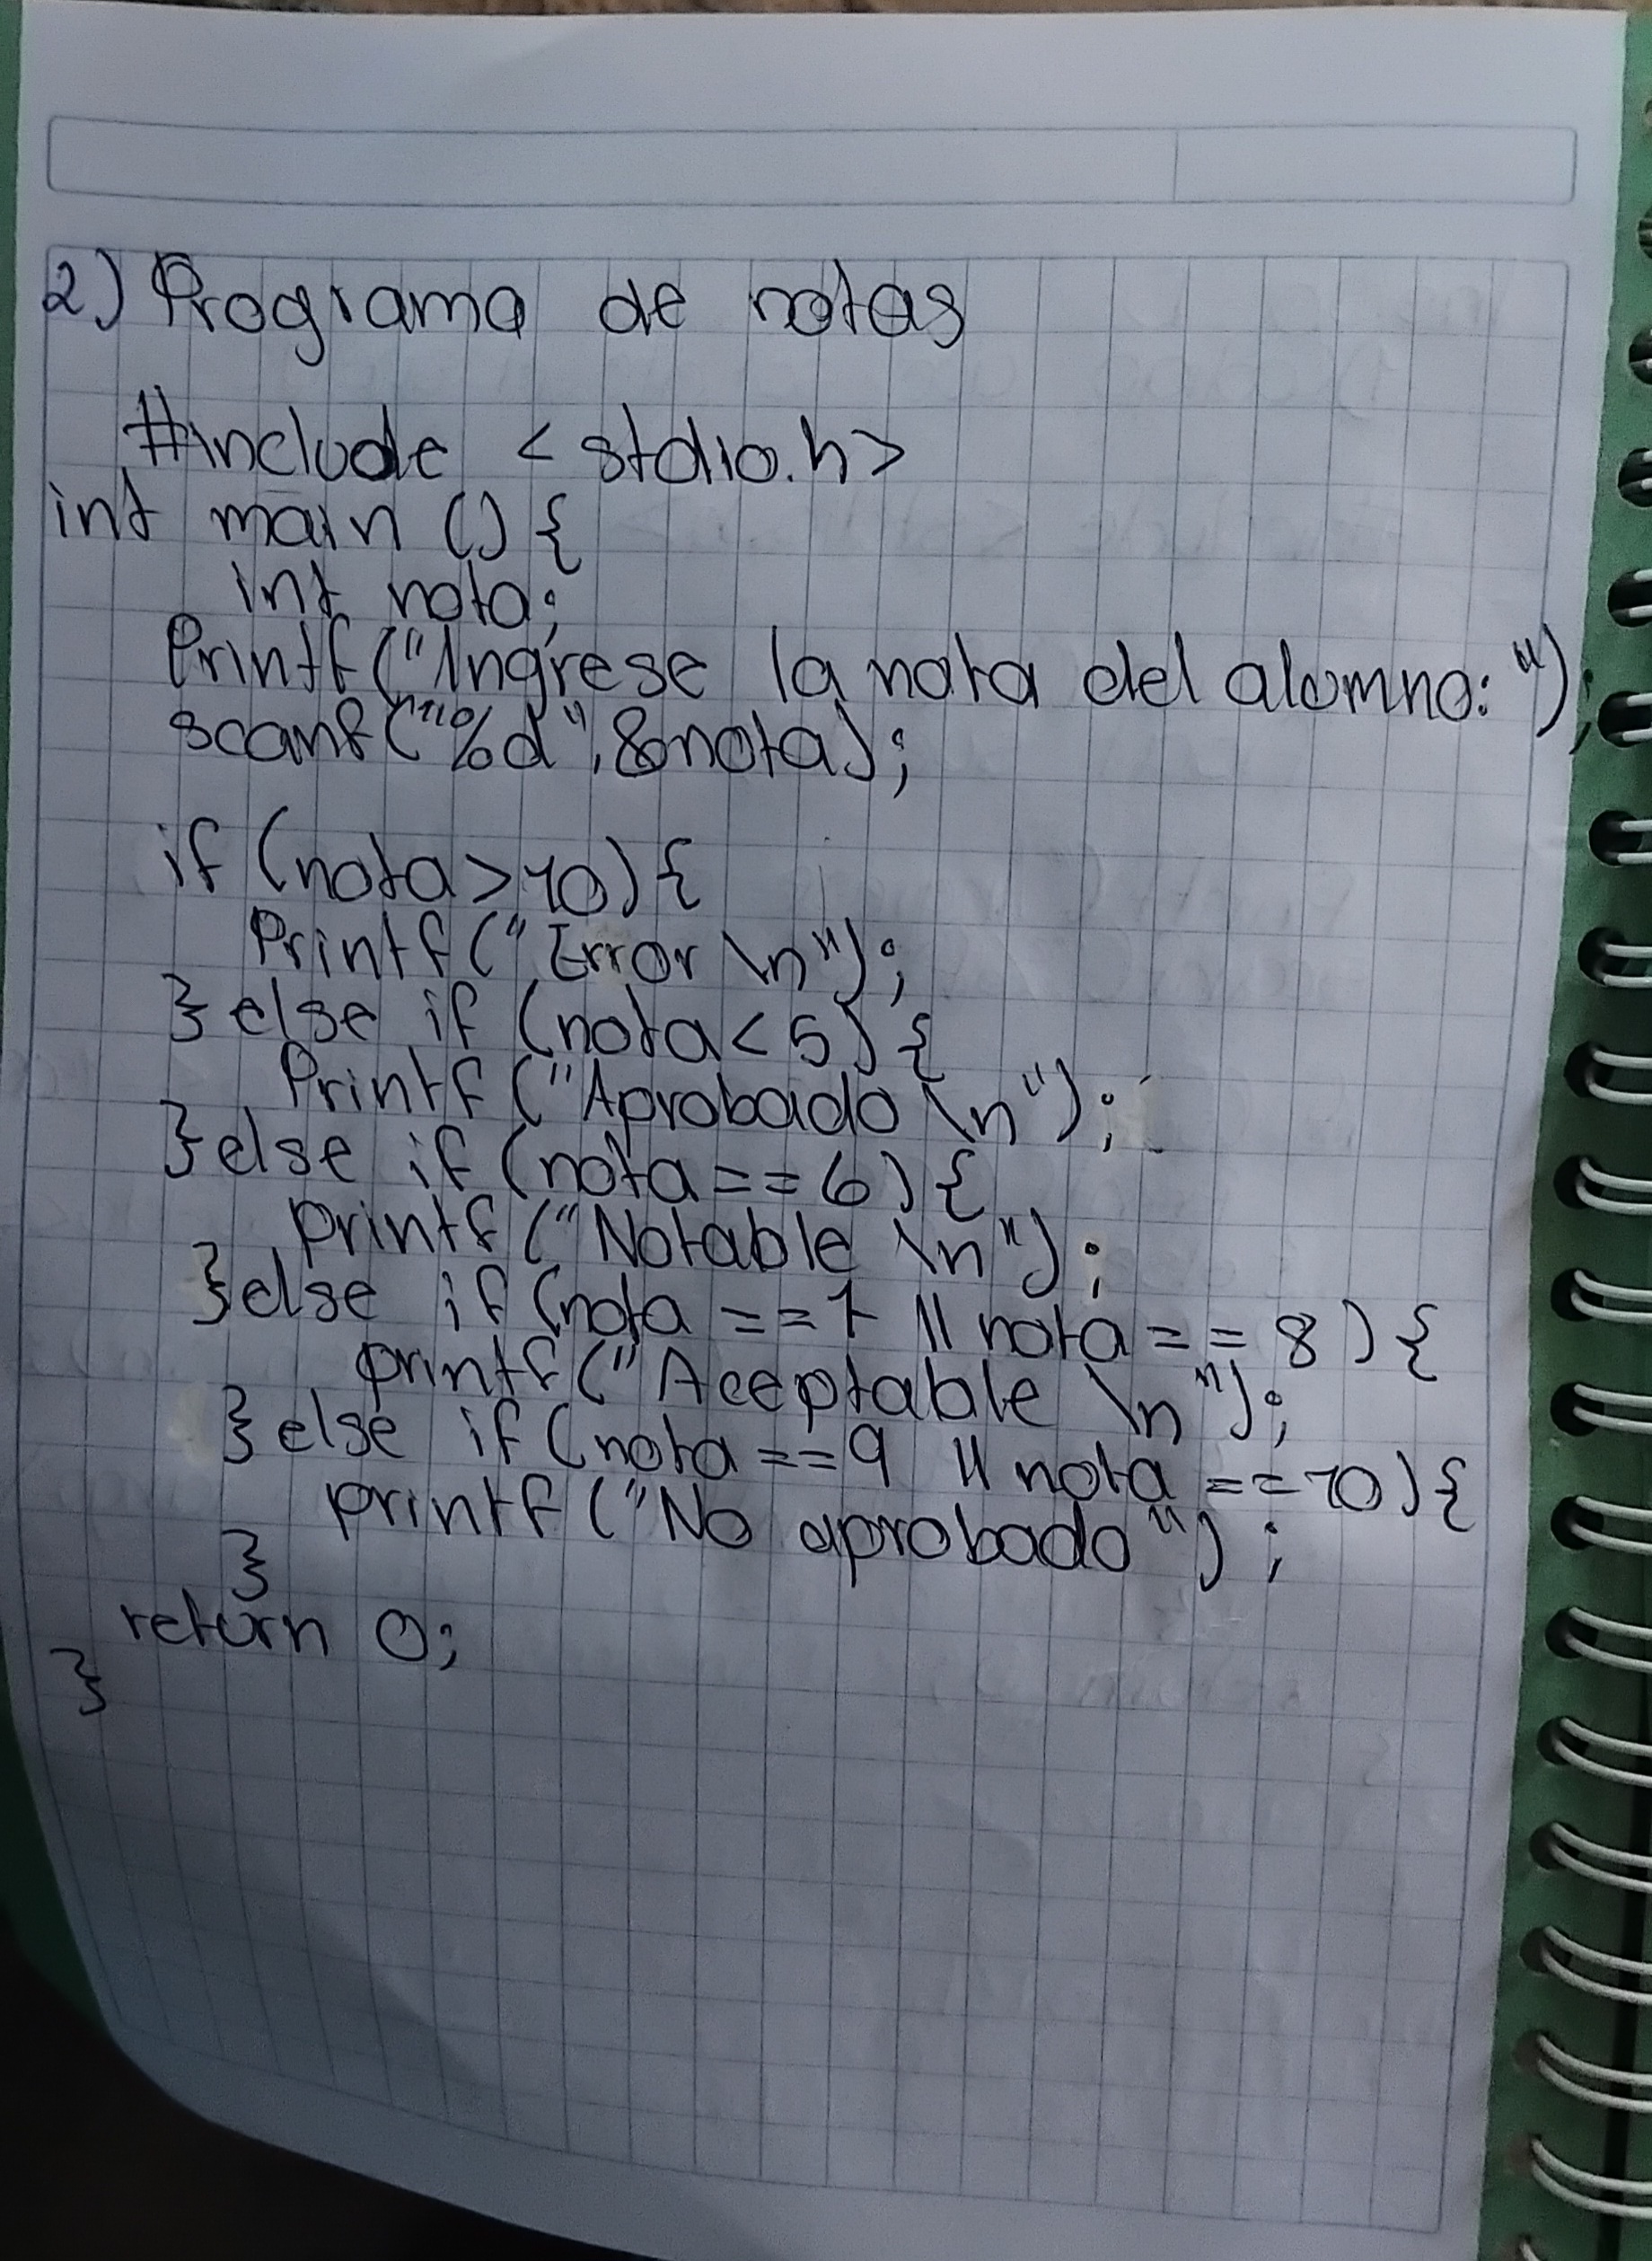 2) Programa de notas
#include <stdio.h>
int main () {
int nota;
Printf ("Ingrese la nota del alumno: ");
scanf ("%d", &nota);
if (nota > 10) {
Printf (" Error \n");
} else if (nota < 5) {
Printf ("Aprobado \n");
} else if (nota == 6) {
printf ("Notable \n");
} else if (nota == 7 || nota == 8 ) {
printf ("Aceptable \n");
} else if (nota == 9 || nota == 10) {
printf ("No aprobado") ;
}
return 0;
}